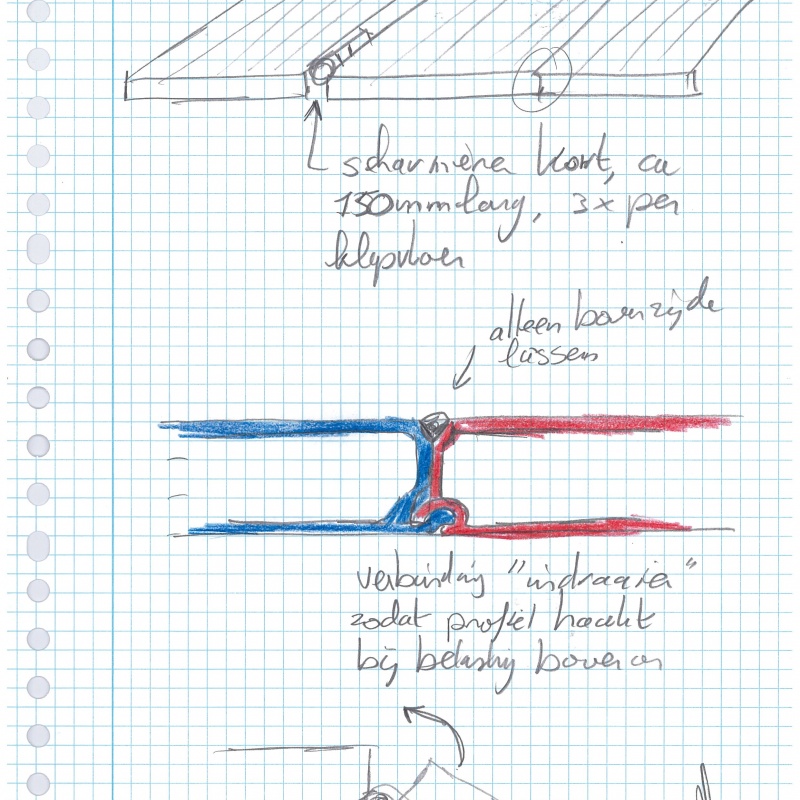 scharnieren kort, ca
150mm lang, 3x per
klepvloer
alleen bovenzijde
lassen
verbinding "indraaien"
zodat profiel haakt
bij belasting bovenop